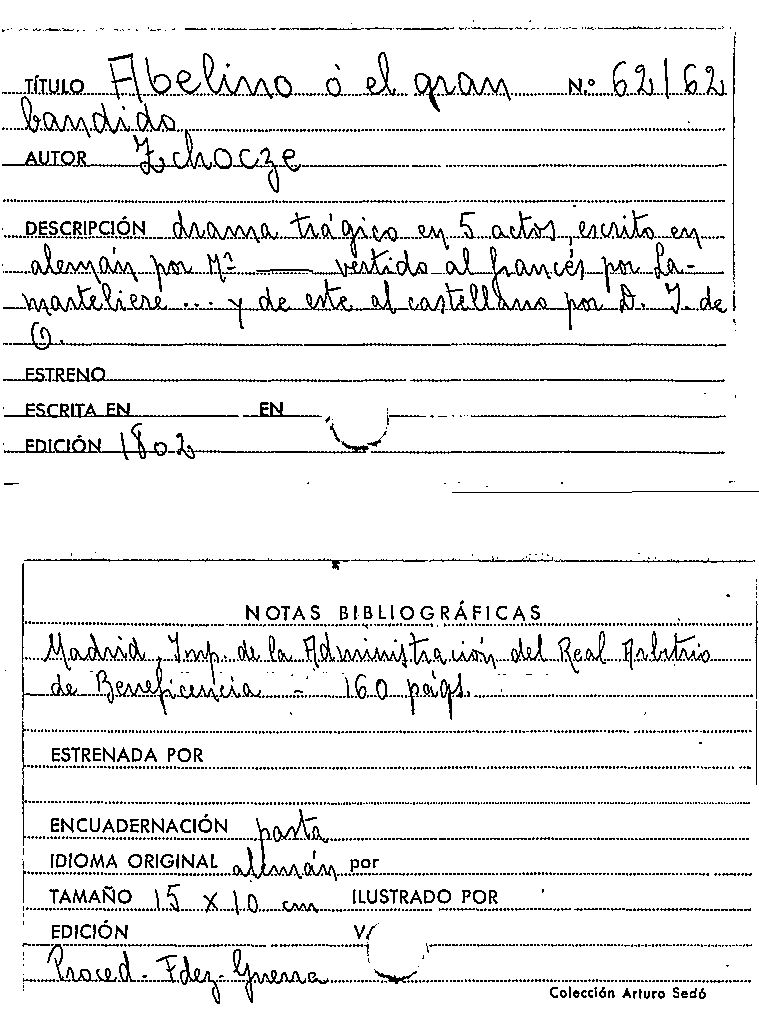 TÍTULO Abelino ó el gran N.º 62162
bandido
AUTOR Zchocze
DESCRIPCIÓN drama trágico en 5 actos, escrito en
alemán por Mº —— vertido al francés por La-
marteliere ... y de este al castellano por D. T. de
O.
ESTRENO
ESCRITA EN EN
EDICIÓN 1802
NOTAS BIBLIOGRÁFICAS
Madrid, Imp. de la Administración del Real Arbitrio
de Beneficencia - 160 págs.
ESTRENADA POR
ENCUADERNACIÓN pasta
IDIOMA ORIGINAL alemán por
TAMAÑO 15 x 10 cm ILUSTRADO POR
EDICIÓN
Proced. Fdez-Guerra
Colección Arturo Sedó